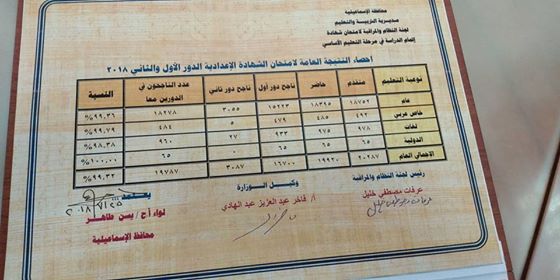 محافظة الإسماعيلية
مديرية التربية والتعليم
لجنة النظام والمراقبة لامتحان شهادة
إتمام الدراسة في مرحلة التعليم الأساسي
احصاء النتيجة العامة لامتحان الشهادة الإعدادية الدور الأول والثاني ٢٠١٨
نوعية التعليم متقدم حاضر ناجح دور أول ناجح دور ثاني عدد الناجحون في الدورين معا النسبة
عام ١٨٧٥٢ ١٨٣٩٥ ١٥٢٢٣ ٣٠٥٥ ١٨٢٧٨ %٩٩,٣٦
خاص عربي ٤٩٢ ٤٨٥ ٤٧٩ ٥ ٤٨٤ %٩٩,٧٩
لغات ٩٧٨ ٩٧٥ ٩٣٣ ٢٧ ٩٦٠ %٩٨,٣٨
الدولية ٦٥ ٦٥ ٦٥ ٠ ٦٥ %١٠٠,٠٠
الاجمالي العام ٢٠٢٨٧ ١٩٩٢٠ ١٦٧٠٠ ٣٠٨٧ ١٩٧٨٧ %٩٩,٣٢
رئيس لجنة النظام والمراقبة
عرفات مصطفى خليل
وكيل الوزارة
أ/ فاخر عبد العزيز عبد الهادي
يعتمد
لواء أ.ح / يسن طاهر
محافظ الإسماعيلية